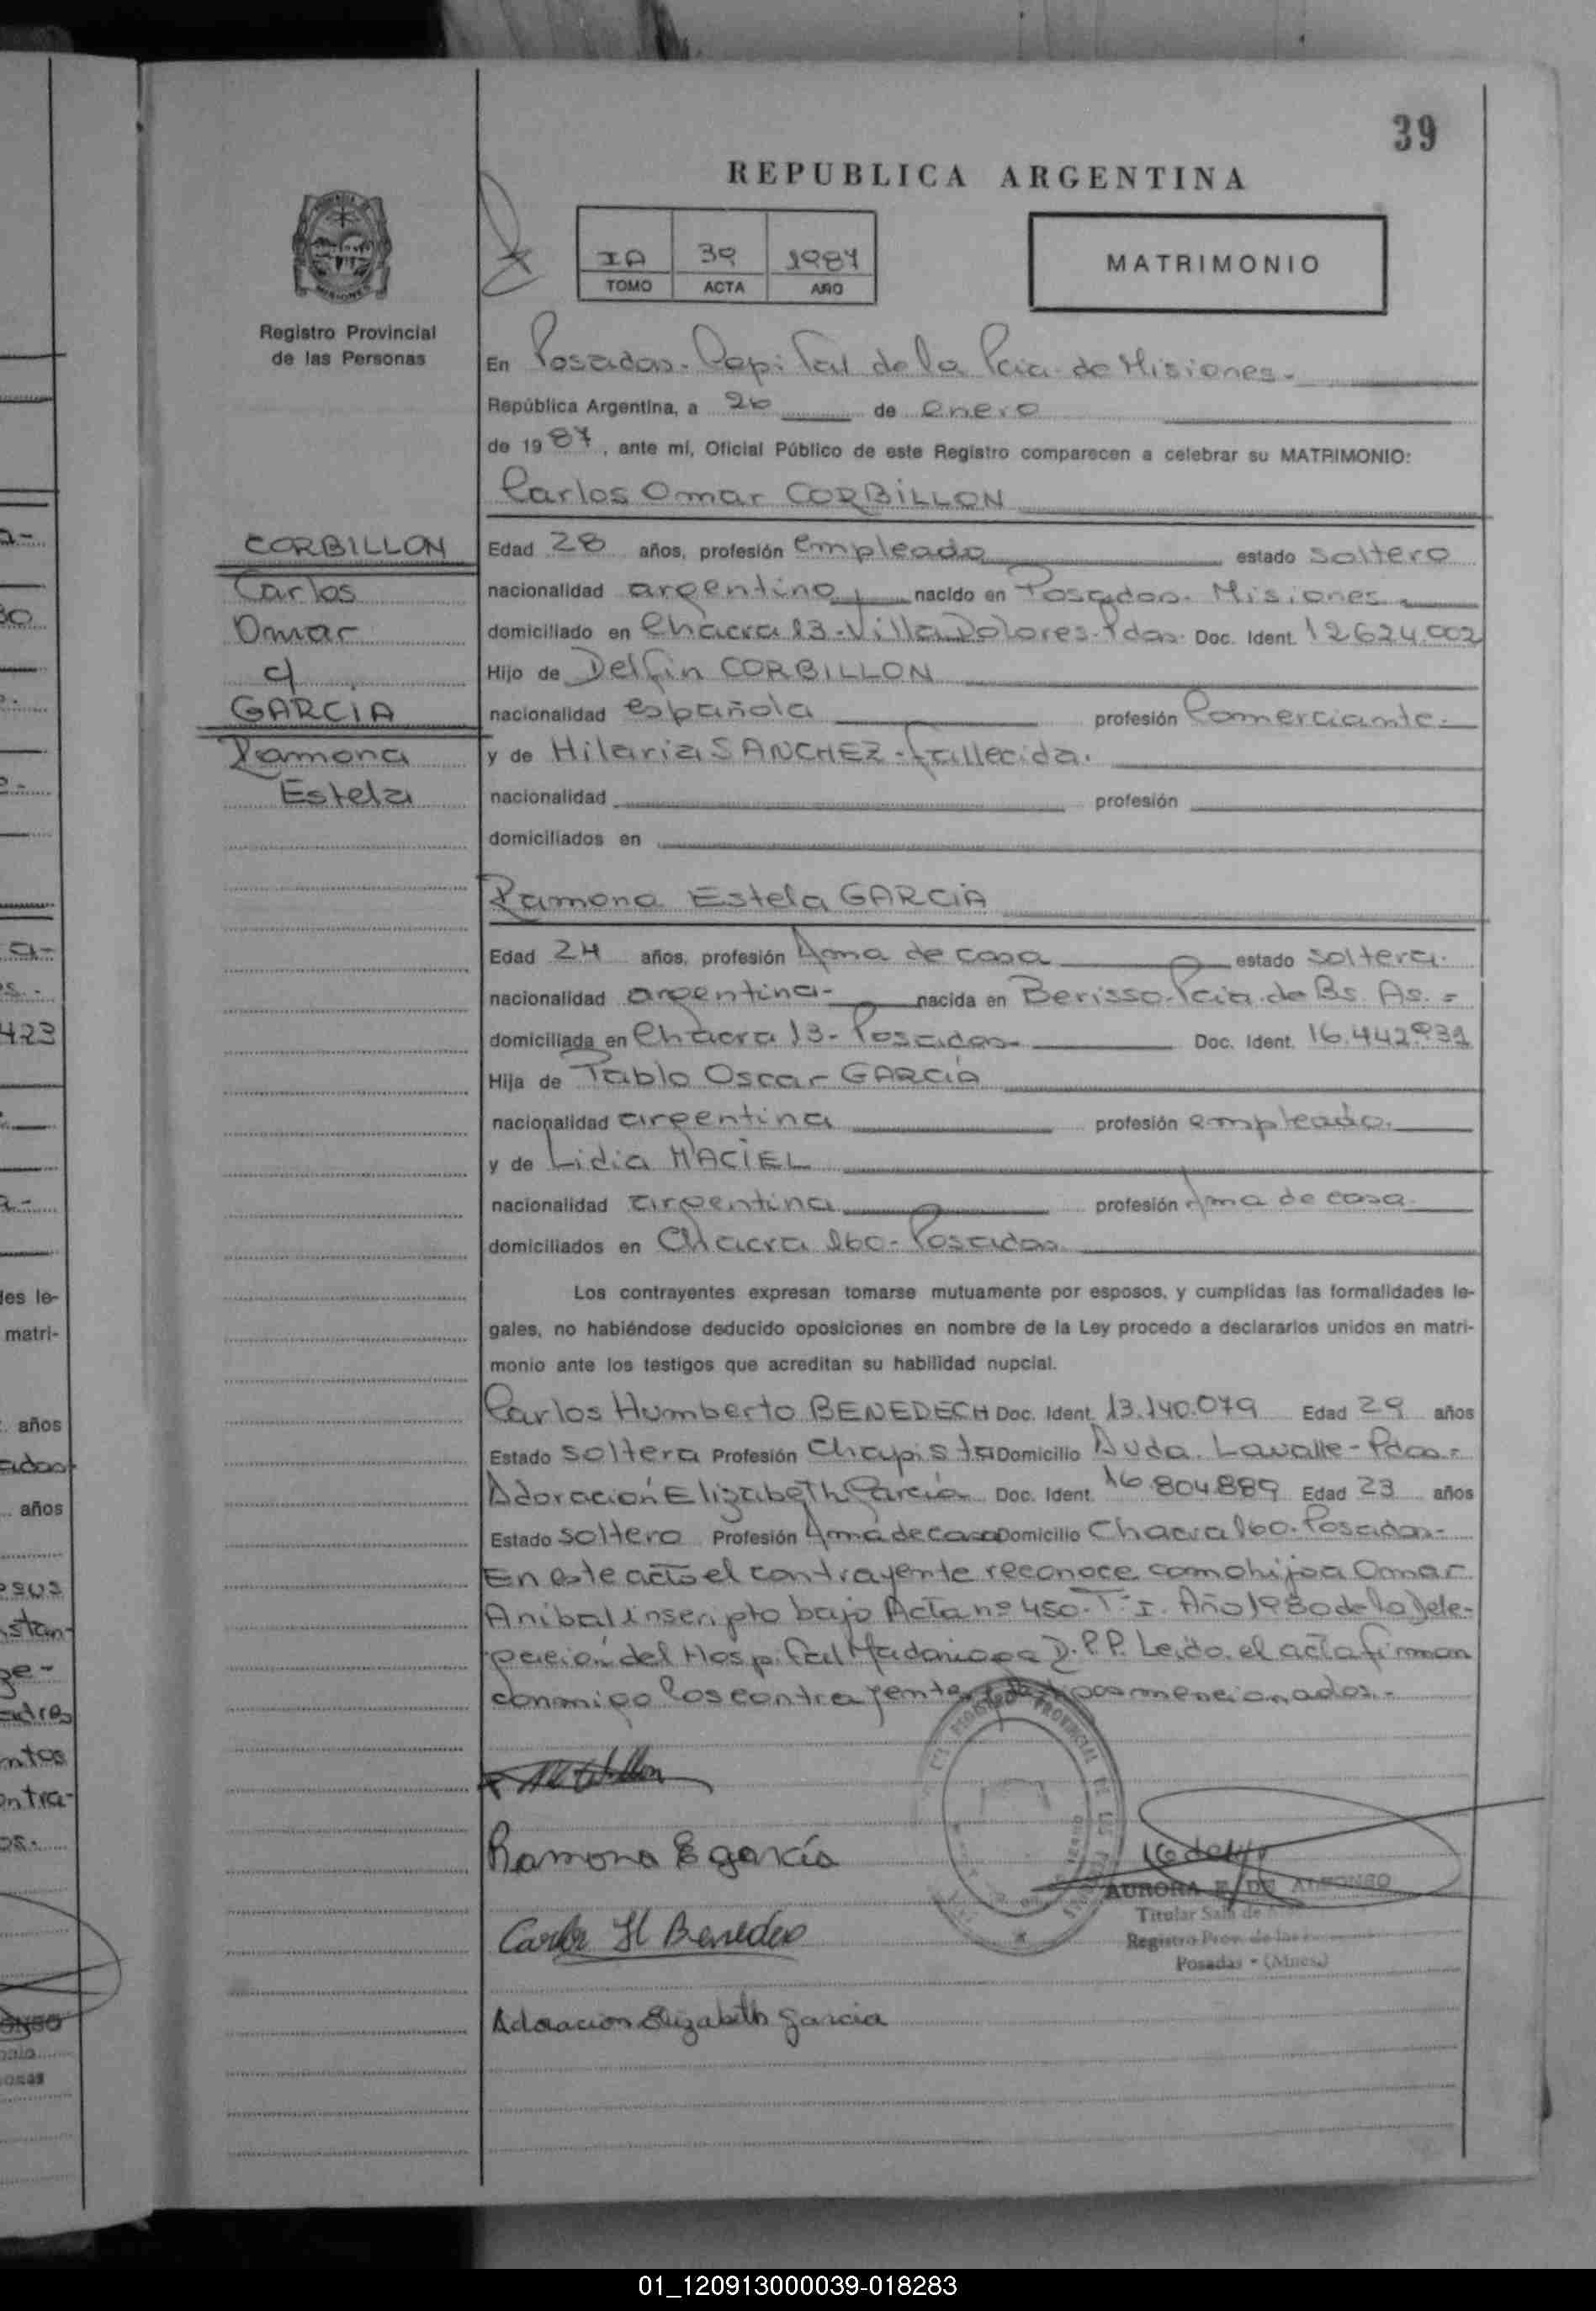 39
REPUBLICA ARGENTINA
IA 39 1987
TOMO ACTA AÑO
MATRIMONIO
MISIONES
Registro Provincial
de las Personas
En Posadas - Capital de la Pcia. de Misiones -
República Argentina, a 26 de enero
de 1987, ante mí, Oficial Público de este Registro comparecen a celebrar su MATRIMONIO:
Carlos Omar CORBILLON
CORBILLON
Carlos
Omar
c/
GARCIA
Ramona
Estela
Edad 28 años, profesión empleado estado soltero
nacionalidad argentino nacido en Posadas. Misiones
domiciliado en Chacra 13-Villa Dolores-Pdas. Doc. Ident. 12624.002
Hijo de Delfin CORBILLON
nacionalidad española profesión Comerciante.
y de Hilaria SANCHEZ - fallecida.
nacionalidad profesión
domiciliados en
Ramona Estela GARCIA
Edad 24 años, profesión Ama de casa estado soltera.
nacionalidad argentina- nacida en Berisso-Pcia. de Bs. As. =
domiciliada en Chacra 13- Posadas Doc. Ident. 16.442.931
Hija de Pablo Oscar GARCIA
nacionalidad argentina profesión empleado.
y de Lidia MACIEL
nacionalidad argentina profesión Ama de casa
domiciliados en Chacra 160- Posadas
Los contrayentes expresan tomarse mutuamente por esposos, y cumplidas las formalidades le-
gales, no habiéndose deducido oposiciones en nombre de la Ley procedo a declararlos unidos en matri-
monio ante los testigos que acreditan su habilidad nupcial.
Carlos Humberto BENEDECH Doc. Ident. 13.140.079 Edad 29 años
Estado soltera Profesión Chapista Domicilio Avda. Lavalle - Pdas.=
Adoración Elizabeth García Doc. Ident. 16.804.889 Edad 23 años
Estado soltero Profesión Ama de casa Domicilio Chacra 160. Posadas-
En este acto el contrayente reconoce como hijo a Omar
Anibal inscripto bajo Acta nº 450. Tº I. Año 1980 de la Dele-
gación del Hospital Madariaga R.P.P. Leído el acta firman
conmigo los contrayentes y testigos mencionados.-
Ramona E garcía
Carlos H Benedech
Adoracion Elizabeth garcia
AURORA E. DE ALFONSO
Titular Sala de
Registro Prov. de las
Posadas - (Mnes.)
a-
30
423
des le-
matri-
años
adas
años
esus
stan-
ge-
adres
ntos
ontra-
os.
01_120913000039-018283